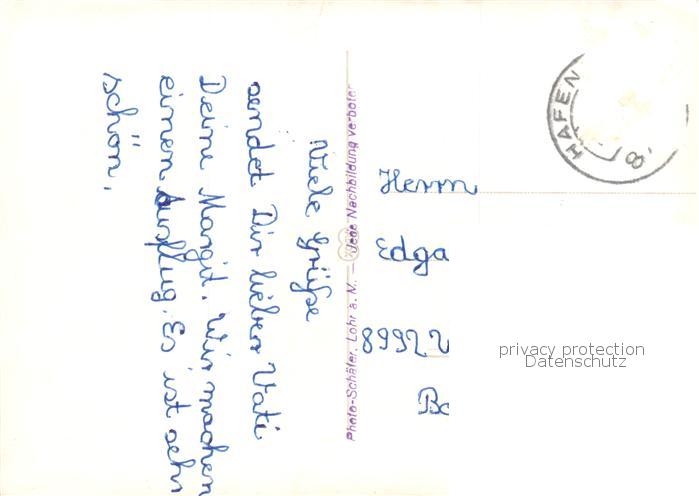 Viele Grüße
sendet Dir lieber Vati
Deine Margit. Wir machen
einen Ausflug. Es ist sehr
schön.
Photo-Schäfer, Lohr a. M. — Jede Nachbildung verboten
Herrn
Edga
8992
HAFEN
privacy protection
Datenschutz